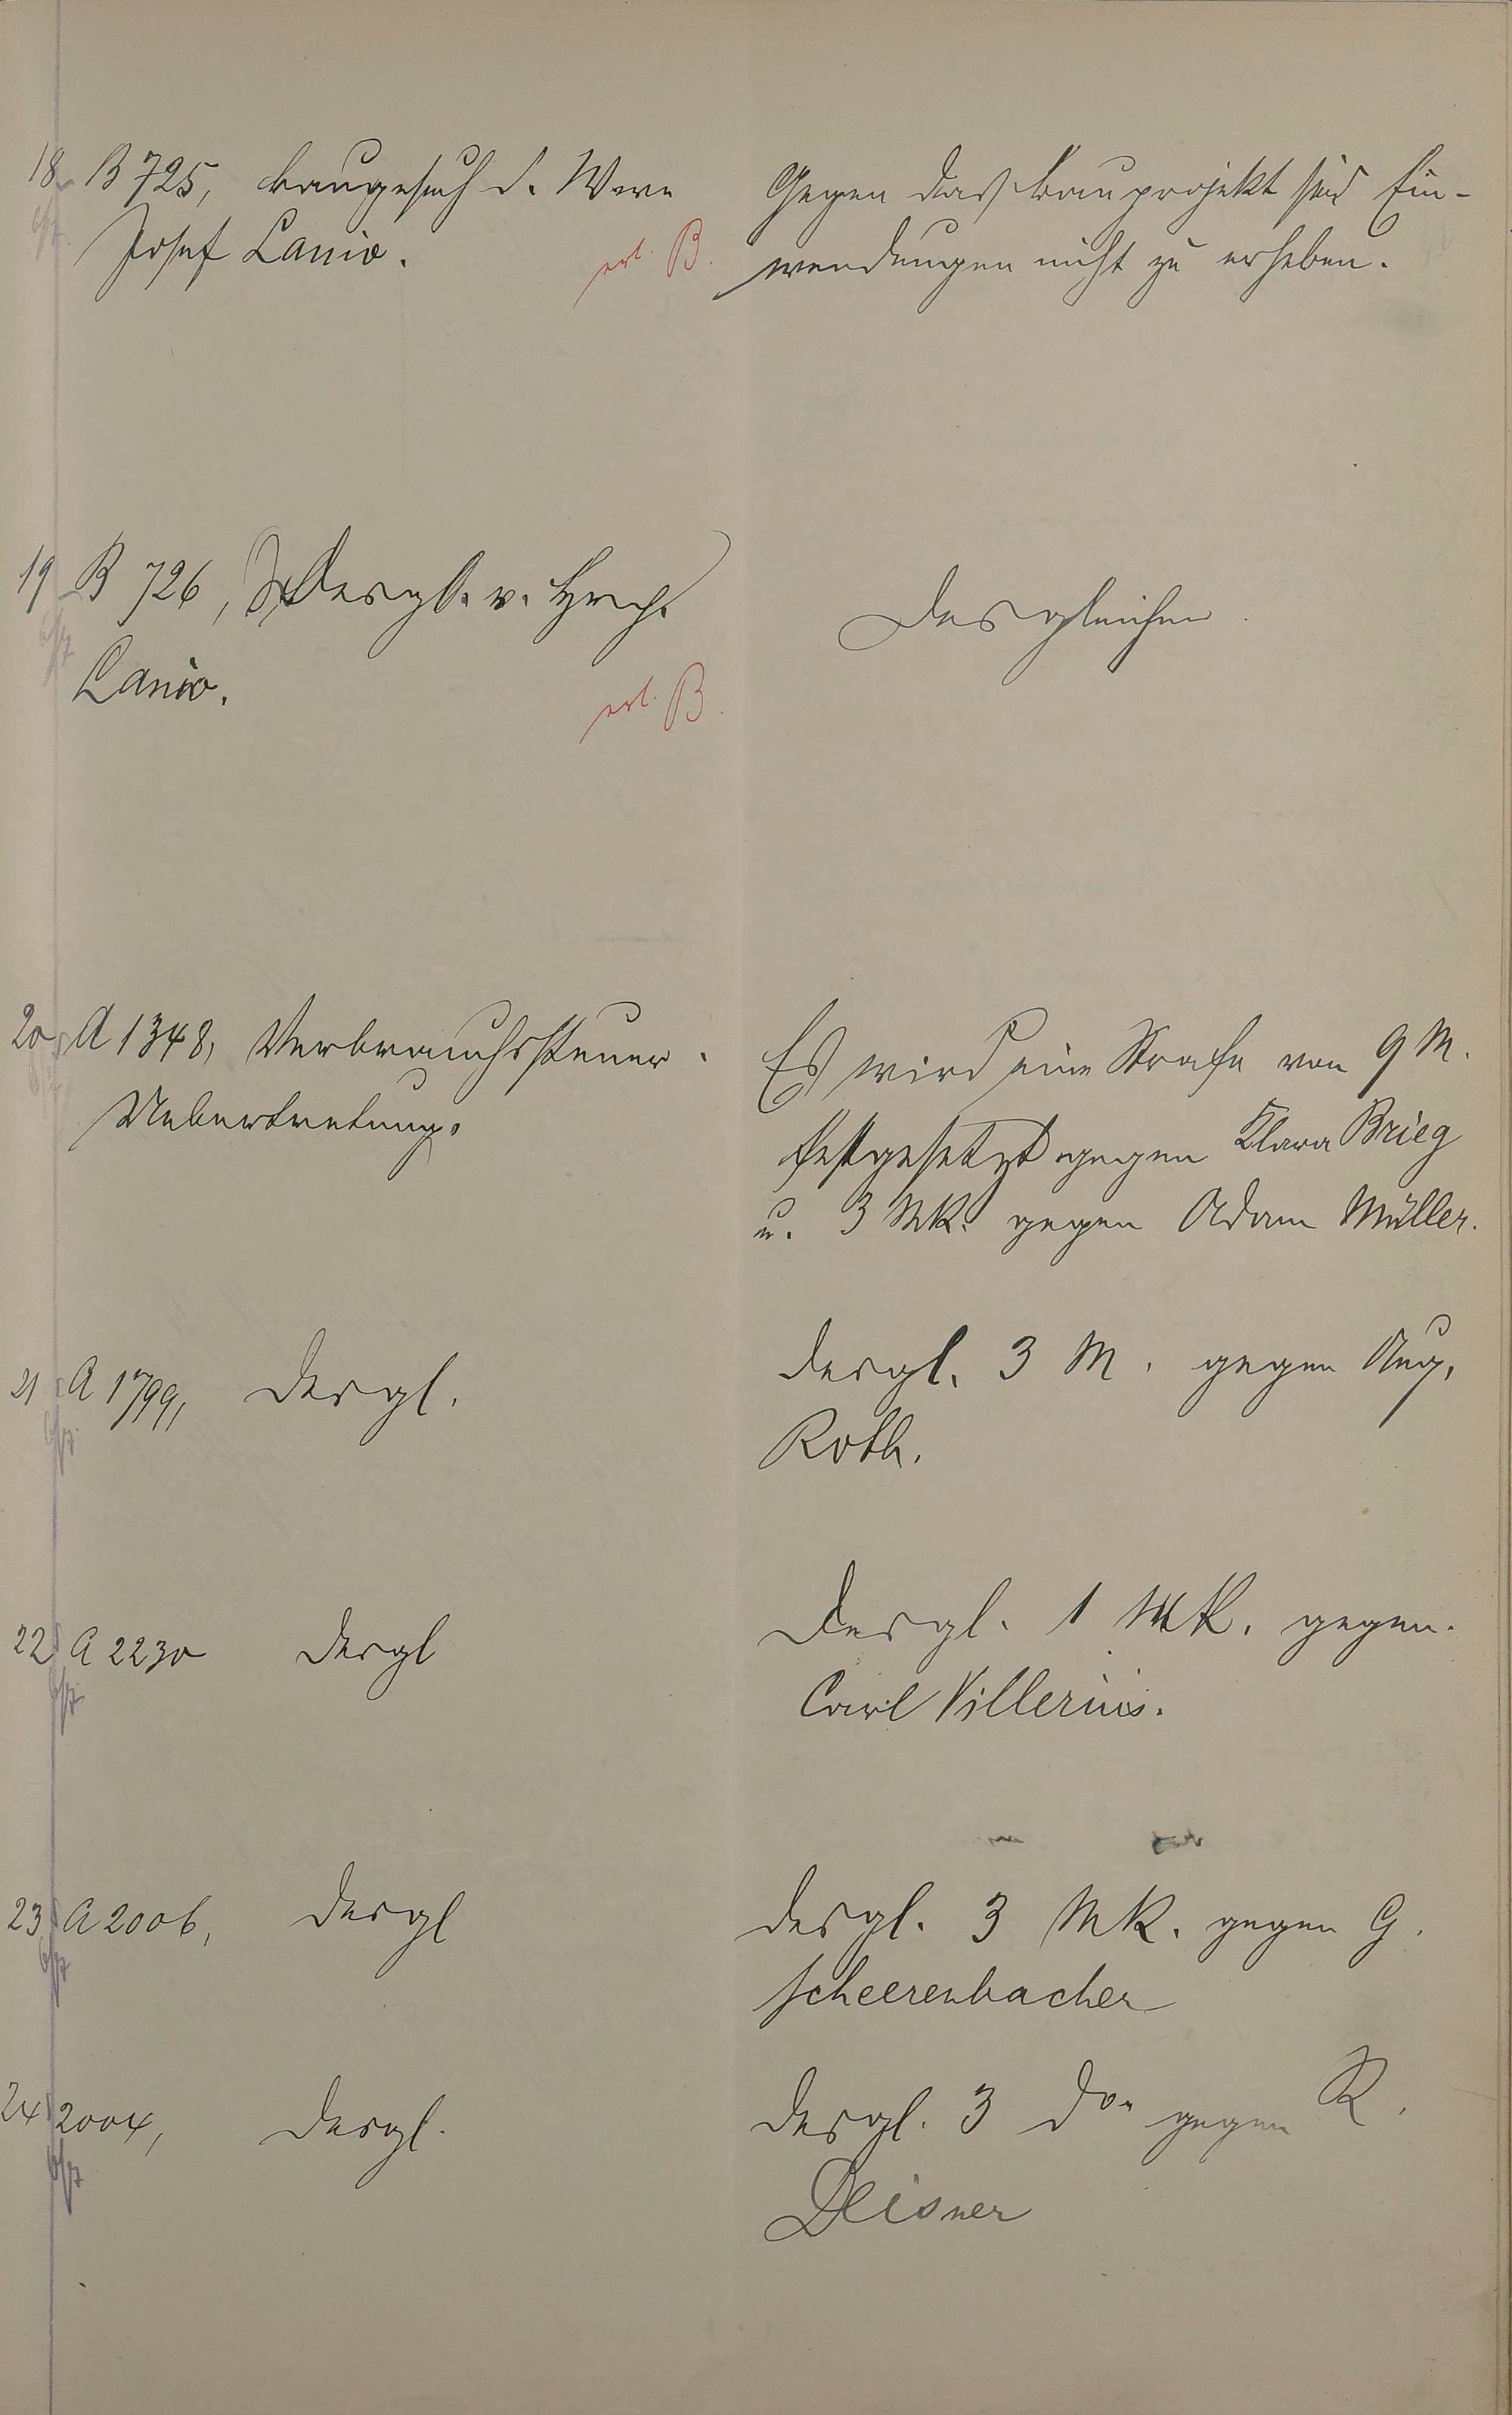 18 B 725, Baugesuch d. Wwe
Josef Lanio.
erl. B.
Gegen das Bauprojekt sind Ein-
wendungen nicht zu erheben.
19 B 726, Desgl. v. Hrch.
Lanio.
erl. B.
Desgleichen
20 A 1348, Verbrauchssteuer-
Uebertretung.
Es wird eine Strafe von 9 M.
festgesetzt gegen Klara Brieg
u. 3 Mk. gegen Adam Müller.
21 A 1799, Desgl.
desgl. 3 M. gegen Aug.
Roth.
22 A 2230 desgl
Desgl. 1 Mk. gegen
Carl Villerius.
23 A 2006, desgl
desgl. 3 Mk. gegen G.
Scheerenbacher
24 2004, desgl.
desgl. 3 do gegen R.
Deisner